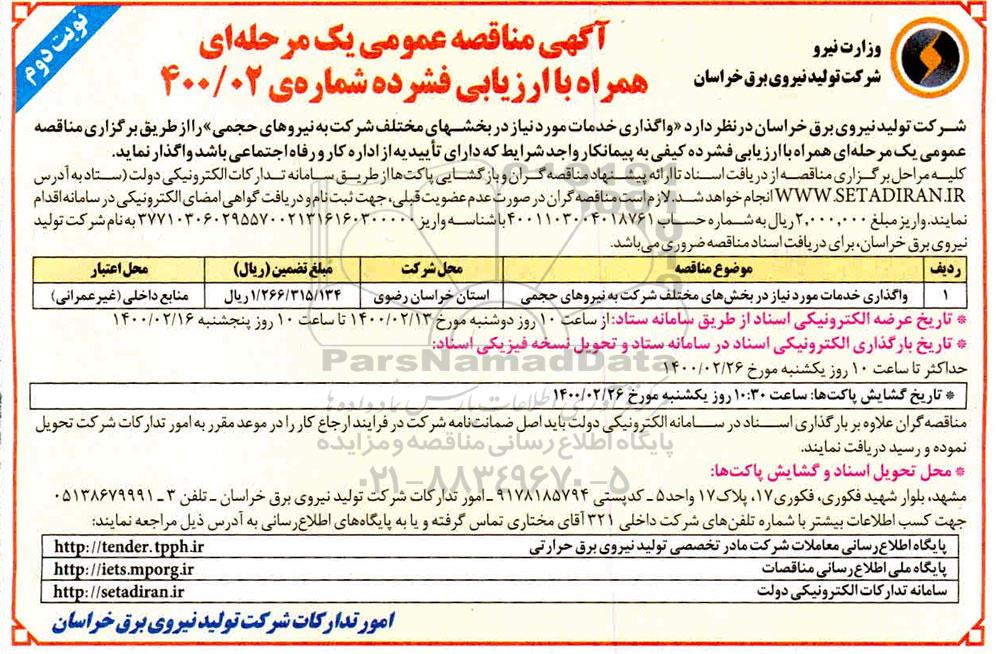 نوبت دوم
وزارت نیرو
شرکت تولید نیروی برق خراسان
آگهی مناقصه عمومی یک مرحله‌ای
همراه با ارزیابی فشرده شماره‌ی ۴۰۰/۰۲
شرکت تولید نیروی برق خراسان در نظر دارد «واگذاری خدمات مورد نیاز در بخشهای مختلف شرکت به نیروهای حجمی» را از طریق برگزاری مناقصه
عمومی یک مرحله‌ای همراه با ارزیابی فشرده کیفی به پیمانکار واجد شرایط که دارای تأییدیه از اداره کار و رفاه اجتماعی باشد واگذار نماید.
کلیه مراحل برگزاری مناقصه از دریافت اسناد تا ارائه پیشنهاد مناقصه گران و بازگشایی پاکت‌ها از طریق سامانه تدارکات الکترونیکی دولت (ستاد به آدرس
WWW.SETADIRAN.IR انجام خواهد شد. لازم است مناقصه گران در صورت عدم عضویت قبلی، جهت ثبت نام و دریافت گواهی امضای الکترونیکی در سامانه اقدام
نمایند. واریز مبلغ ۲,۰۰۰,۰۰۰ ریال به شماره حساب ۴۰۰۱۱۰۳۰۰۴۰۱۸۷۶۱ با شناسه واریز ۳۷۷۱۰۳۰۶۰۲۹۵۵۷۰۰۲۱۳۱۶۱۶۰۳۰۰۰۰۰ به نام شرکت تولید
نیروی برق خراسان، برای دریافت اسناد مناقصه ضروری می‌باشد.
ردیف موضوع مناقصه محل شرکت مبلغ تضمین (ریال) محل اعتبار
۱ واگذاری خدمات مورد نیاز در بخش‌های مختلف شرکت به نیروهای حجمی استان خراسان رضوی ۱/۲۶۶/۳۱۵/۱۳۴ ریال منابع داخلی (غیرعمرانی)
* تاریخ عرضه الکترونیکی اسناد از طریق سامانه ستاد: از ساعت ۱۰ روز دوشنبه مورخ ۱۴۰۰/۰۲/۱۳ تا ساعت ۱۰ روز پنجشنبه ۱۴۰۰/۰۲/۱۶
* تاریخ بارگذاری الکترونیکی اسناد در سامانه ستاد و تحویل نسخه فیزیکی اسناد:
حداکثر تا ساعت ۱۰ روز یکشنبه مورخ ۱۴۰۰/۰۲/۲۶
* تاریخ گشایش پاکت‌ها: ساعت ۱۰:۳۰ روز یکشنبه مورخ ۱۴۰۰/۰۲/۲۶
مناقصه گران علاوه بر بارگذاری اسناد در سامانه الکترونیکی دولت باید اصل ضمانت‌نامه شرکت در فرایند ارجاع کار را در موعد مقرر به امور تدارکات شرکت تحویل
نموده و رسید دریافت نمایند.
* محل تحویل اسناد و گشایش پاکت‌ها:
مشهد، بلوار شهید فکوری، فکوری ۱۷، پلاک ۱۷ واحد ۵ ـ کدپستی ۹۱۷۸۱۸۵۷۹۴ ـ امور تدارکات شرکت تولید نیروی برق خراسان ـ تلفن ۳ ـ ۰۵۱۳۸۶۷۹۹۹۱
جهت کسب اطلاعات بیشتر با شماره تلفن‌های شرکت داخلی ۳۲۱ آقای مختاری تماس گرفته و یا به پایگاه‌های اطلاع‌رسانی به آدرس ذیل مراجعه نمایند:
پایگاه اطلاع‌رسانی معاملات شرکت مادر تخصصی تولید نیروی برق حرارتی http://tender.tpph.ir
پایگاه ملی اطلاع‌رسانی مناقصات http://iets.mporg.ir
سامانه تدارکات الکترونیکی دولت http://setadiran.ir
امور تدارکات شرکت تولید نیروی برق خراسان
ParsNamadData
پایگاه اطلاع رسانی مناقصه و مزایده
۰۲۱-۸۸۳۴۹۶۷۰-۵